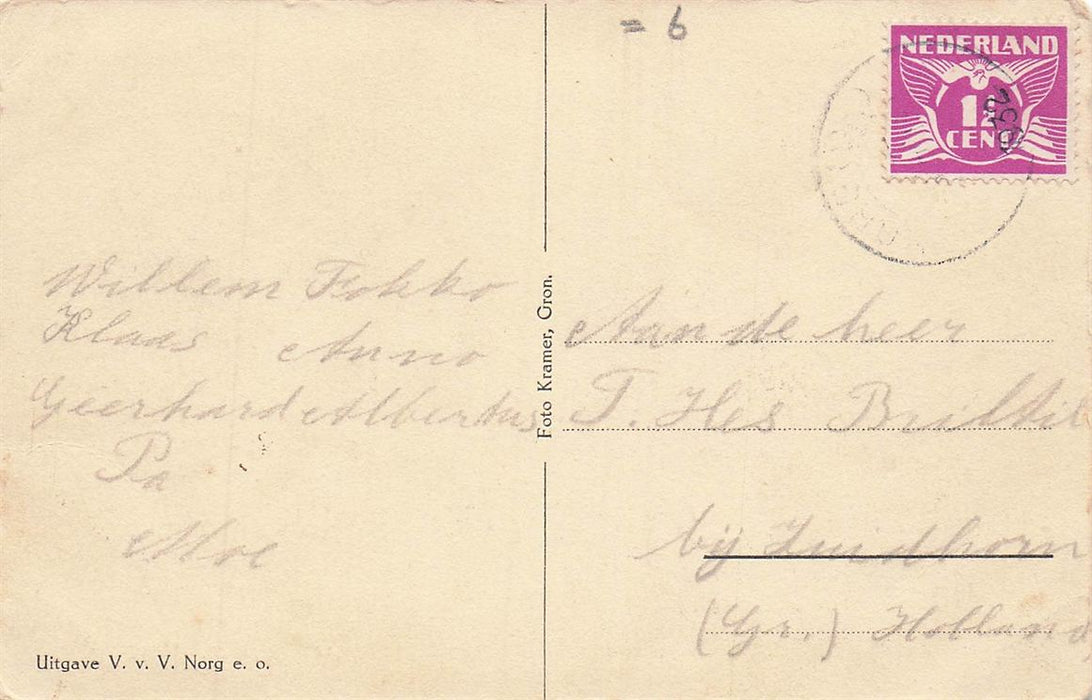 = 6
NEDERLAND
1½
CENT
Willem Fokko
Klaas Anno
Geerhard Albertus
Pa
Moe
Foto Kramer, Gron.
Aan de heer
T. Hes Briltil
bij Zuidhorn
(Gr.) Holland
Uitgave V. v. V. Norg e. o.